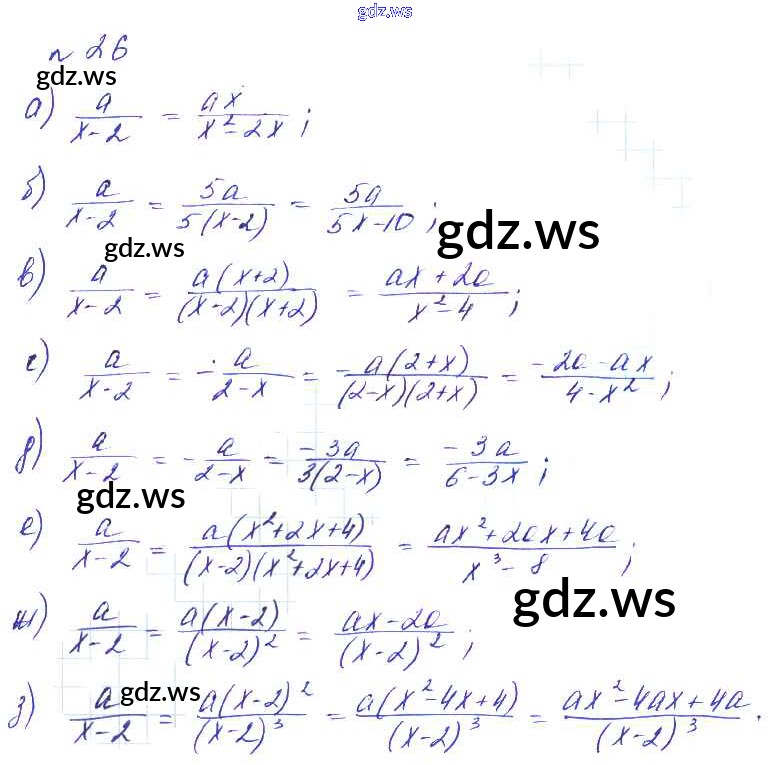 gdz.ws
n 26
gdz.ws
а) a/(x-2) = ax/(x²-2x);
б) a/(x-2) = 5a/(5(x-2)) = 5a/(5x-10);
gdz.ws
gdz.ws
в) a/(x-2) = a(x+2)/((x-2)(x+2)) = (ax+2a)/(x²-4);
г) a/(x-2) = -a/(2-x) = -a(2+x)/((2-x)(2+x)) = (-2a-ax)/(4-x²);
д) a/(x-2) = -a/(2-x) = -3a/(3(2-x)) = -3a/(6-3x);
gdz.ws
е) a/(x-2) = a(x²+2x+4)/((x-2)(x²+2x+4)) = (ax²+2ax+4a)/(x³-8);
gdz.ws
ж) a/(x-2) = a(x-2)/(x-2)² = (ax-2a)/(x-2)²;
gdz.ws
з) a/(x-2) = a(x-2)²/(x-2)³ = a(x²-4x+4)/(x-2)³ = (ax²-4ax+4a)/(x-2)³.